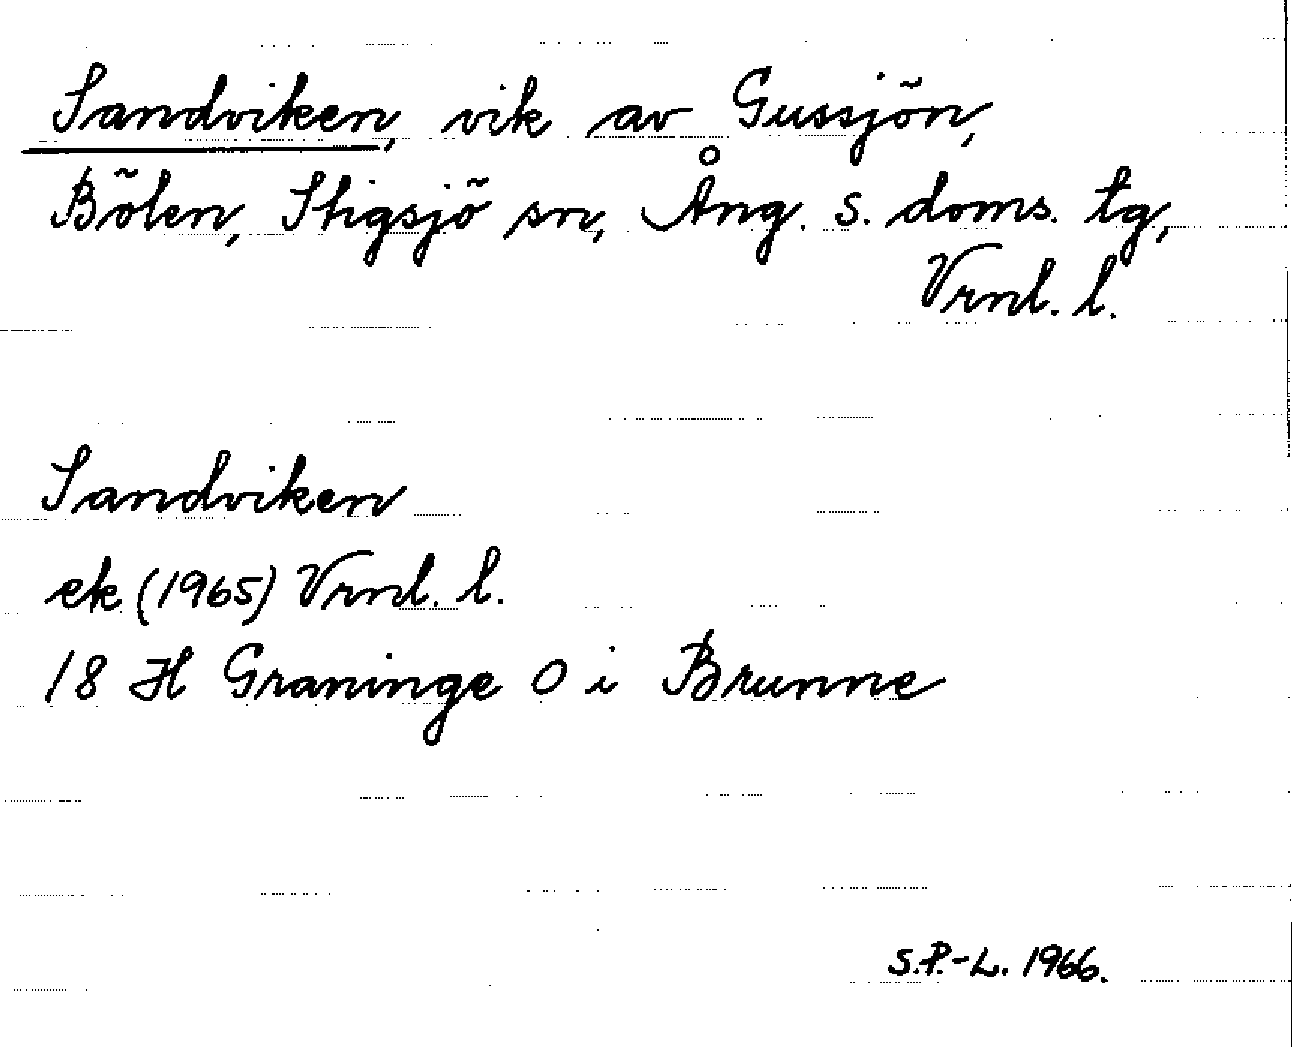 Sandviken, vik av Gussjön,
Bölen, Stigsjö sn, Ång. s. doms. tg,
Vrnl. l.
Sandviken
ek (1965) Vrnl. l.
18 H Graninge O i Brunne
S.P.-L. 1966.